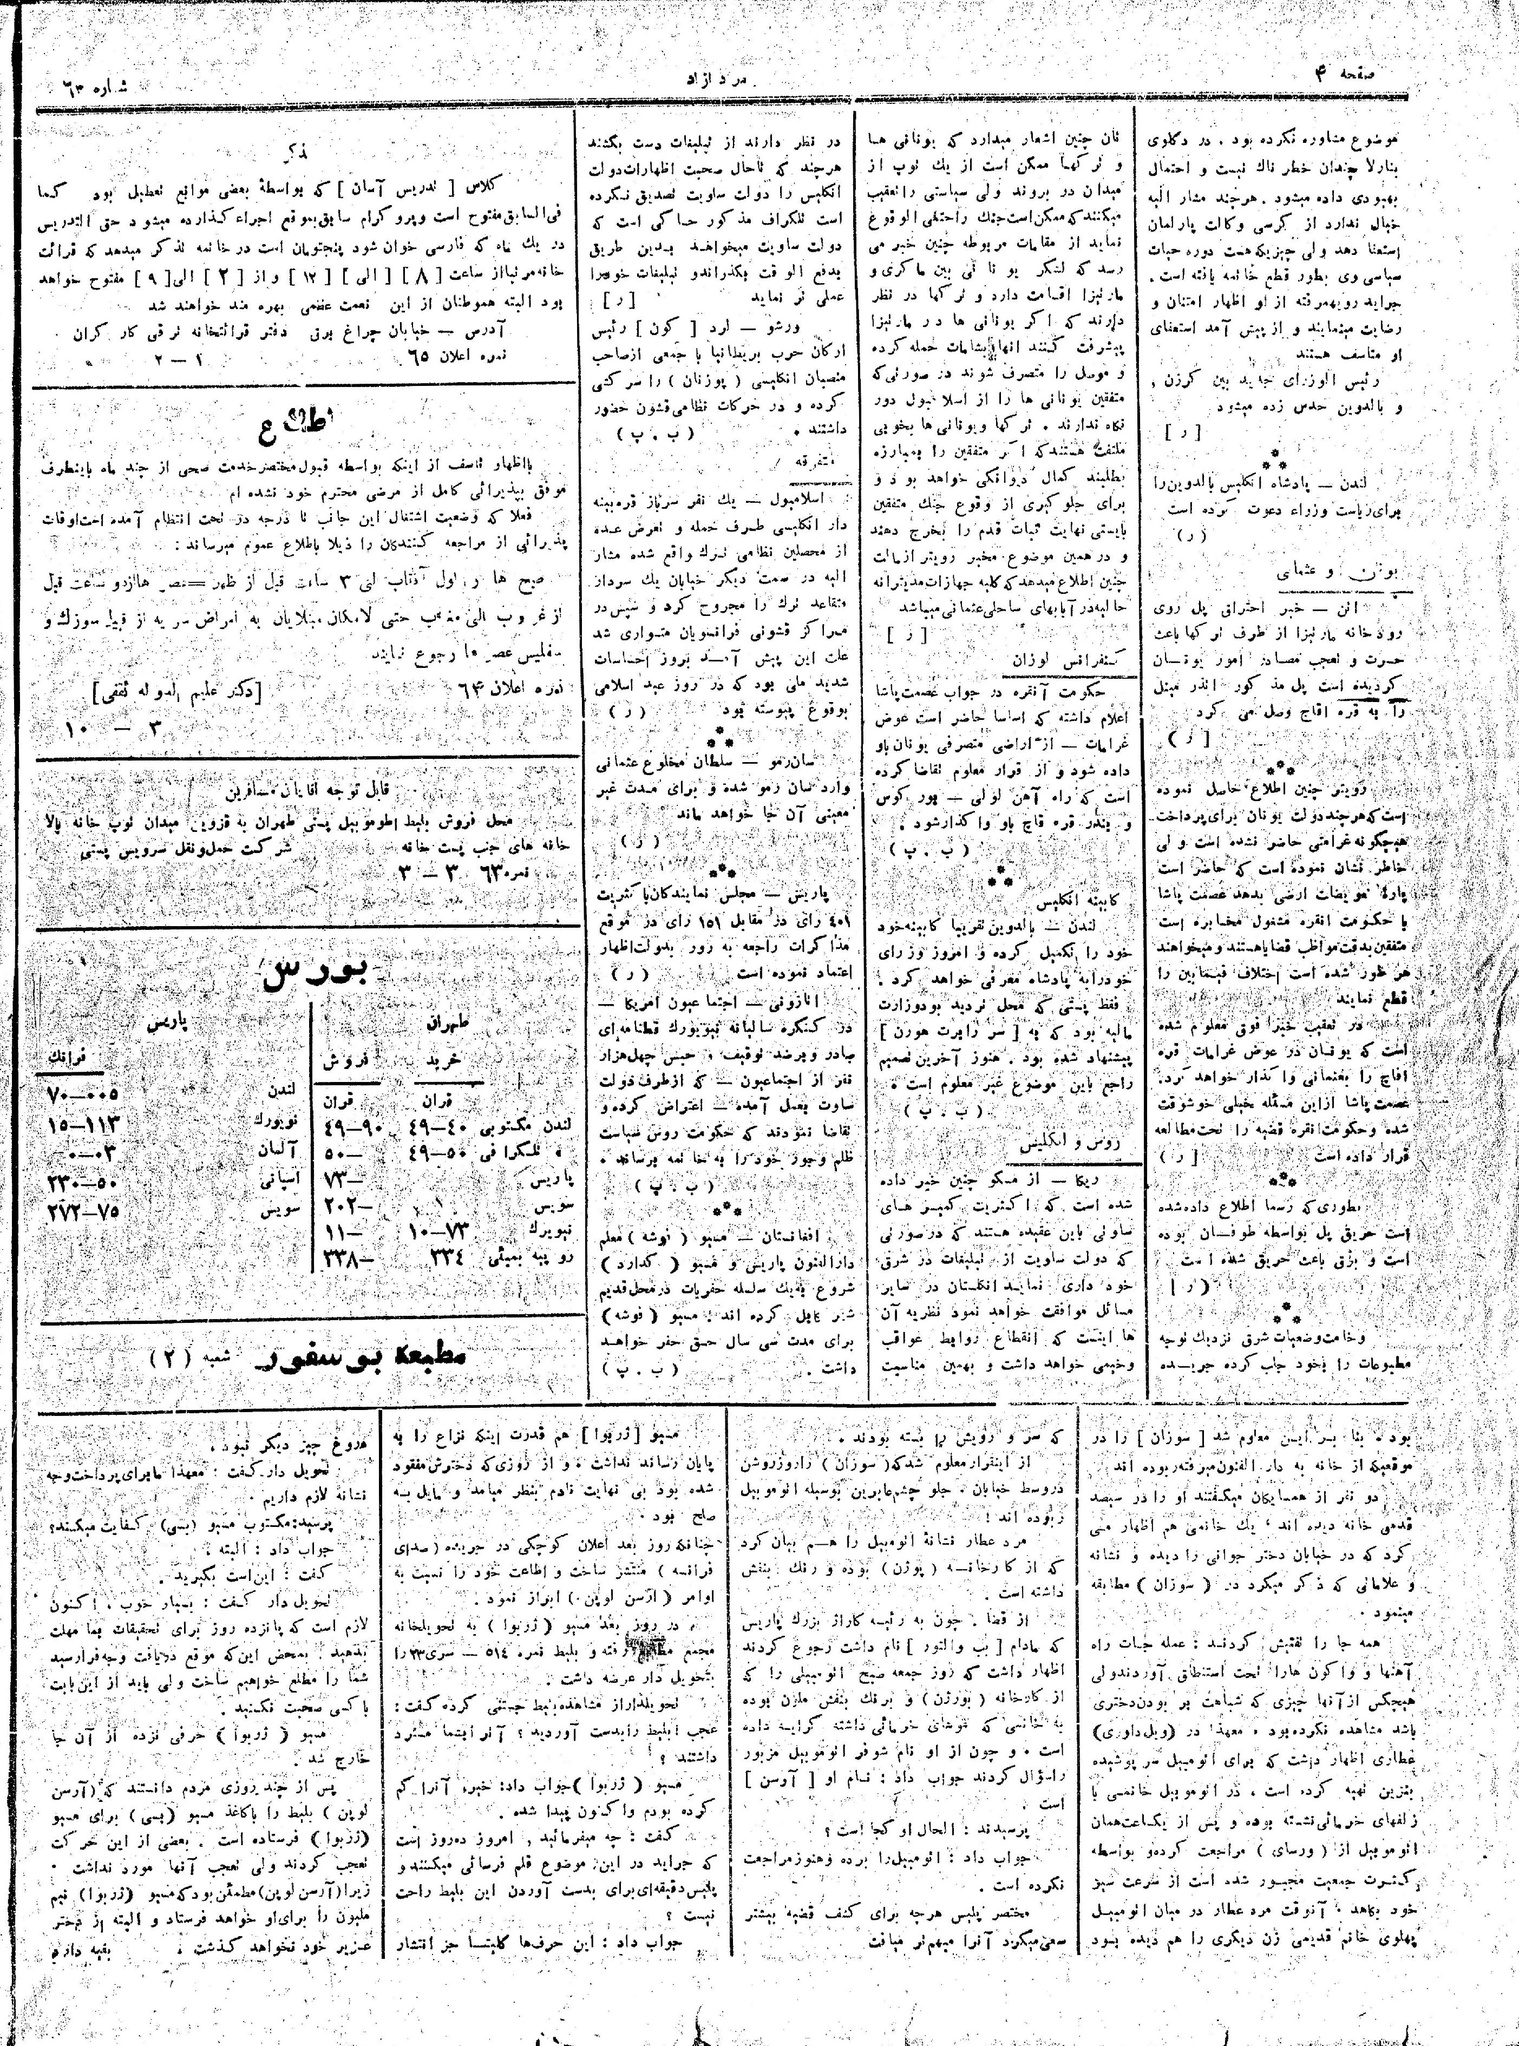 صفحه ۴
مرد آزاد
شماره ۶۳
موضوع مشاوره نکرده بود . در دگلوی
بنارلا چندان خطر ناك نیست و احتمال
بهبودی داده میشود . هرچند مشار الیه
خیال ندارد از کرسی وکالت پارلمان
استعفا دهد ولی چیزیکه هست دوره حیات
سیاسی وی بطور قطع خاتمه یافته است .
جراید رویهمرفته از او اظهار امتنان و
رضایت مینمایند و از پیش آمد استعفای
او متاسف هستند
رئیس الوزرای جدید بین کرزن ,
و بالدوین حدس زده میشود
[ ر ]
لندن — پادشاه انگلیس بالدوین را
برای ریاست وزراء دعوت کرده است
( ر )
یونان و عثمانی
اتن — خبر احتراق پل روی
رودخانه ماریتزا از طرف ترکها باعث
حیرت و تعجب مصادر امور یونان
گردیده است پل مذکور
را به قره اقاچ وصل می کرد
[ ر )
رویتر چنین اطلاع حاصل نموده
است که هرچند دولت یونان برای پرداخت
هیچگونه غرامتی حاضر نشده است ولی
خاطر نشان نموده است که حاضر است
پارۀ تعویضات ارضی بدهد عصمت پاشا
با حکومت انقره مشغول مخابره است
متفقین بدقت مواظب قضایا هستند و میخواهند
هر طور شده است اختلاف فیمابین را
قطع نمایند
در تعقیب خبر فوق معلوم شده
است که یونان در عوض غرامات قره
اقاچ را بعثمانی واگذار خواهد کرد.
عصمت پاشا از این مسئله خیلی خوشوقت
شده و حکومت انقره قضیه را تحت مطالعه
قرار داده است [ ر )
بطوری که رسما اطلاع داده شده
است حریق پل بواسطه طوفان بوده
است و برق باعث حریق شده است
( ر ]
وخامت وضعیات شرق نزدیك توجه
مطبوعات را بخود جلب کرده جریده
تان چنین اشعار میدارد که یونانی ها
و ترکها ممکن است از یك توپ از
میدان در بروند ولی سیاستی را تعقیب
میکنند که ممکن است جنك را حتمی الوقوع
نماید از مقامات مربوطه چنین خبر می
رسد که لشکر یونانی بین ماکری و
ماریتزا اقامت دارد و ترکها در نظر
دارند که اگر یونانی ها در ماریتزا
پیشرفت کنند انها بشامات حمله کرده
و موصل را متصرف شوند در صورتی که
متفقین یونانی ها را از اسلامبول دور
نگاه ندارند . ترکها و یونانی ها بخوبی
ملتفت هستند که اگر متفقین را بمبارزه
بطلبند کمال دیوانگی خواهد بود و
برای جلوگیری از وقوع جنك متفقین
بایستی نهایت ثبات قدم را بخرج دهند
و در همین موضوع مخبر رویتر از مالت
چنین اطلاع میدهد که کلیه جهازات مدیترانه
حالیه در آبهای ساحلی عثمانی میباشد
[ ر ]
کنفرانس لوزان
حکومت آنقره در جواب عصمت پاشا
اعلام داشته که اساسا حاضر است عوض
غرامات — از اراضی متصرفی یونان باو
داده شود و از قرار معلوم تقاضا کرده
است که راه آهن لولی — بورکوس
و بندر قره قاچ باو واگذار شود .
( ب . پ )
کابینه انگلیس
لندن — بالدوین تقریبا کابینه خود
خود را تکمیل کرده و امروز وزرای
خود را به پادشاه معرفی خواهد کرد .
فقط پستی که محل تردید بود وزارت
مالیه بود که به [ سر رابرت هورن ]
پیشنهاد شده بود . هنوز آخرین تصمیم
راجع باین موضوع غیر معلوم است .
( ب . پ )
روس و انگلیس
ریگا — از مسکو چنین خبر داده
شده است که اکثریت کمیسر های
ساوتی باین عقیده هستند که در صورتی
که دولت ساویت از تبلیغات در شرق
خود داری نماید انگلستان در سایر
مسائل موافقت خواهد نمود نظریه آن
ها اینست که انقطاع روابط عواقب
وخیمی خواهد داشت و بهمین مناسبت
در نظر دارند از تبلیغات دست بکشند
هرچند که تاحال صحبت اظهارات دولت
انگلیس را دولت ساویت تصدیق نکرده
است تلگراف مذکور حاکی است که
دولت ساویت میخواهد بدین طریق
بدفع الوقت بگذراند و تبلیغات خود را
عملی تر نماید [ ر ]
ورشو — لرد [ کون ] رئیس
ارکان حرب بریطانیا با جمعی از صاحب
منصبان انگلیسی ( پوزنان ) را سرکشی
کرده و در حرکات نظامی قشون حضور
داشتند . ( ب . پ )
متفرقه
اسلامبول — یك نفر سرباز قره بینه
دار انگلیسی طرف حمله و تعرض عده
از محصلین نظامی ترك واقع شده مشار
الیه در سمت دیگر خیابان یك سرباز
متقاعد ترك را مجروح کرد و سپس در
مراکز قشونی فرانسویان متواری شد
علت این پیش آمد بروز احساسات
شدید ملی بود که در روز عید اسلامی
بوقوع پیوسته بود ( ر )
سان رمو — سلطان مخلوع عثمانی
وارد سان رمو شده و برای مدت غیر
معینی آن جا خواهد ماند
( ر )
پاریس — مجلس نمایندگان با کثریت
٤٠١ رای در مقابل ١٥١ رای در موقع
مذاکرات راجعه به رور بدولت اظهار
اعتماد نموده است ( ر )
اتازونی — اجتماعیون آمریکا —
در کنگره سالیانه نیویورك قطعنامه ای
صادر و برضد توقیف و حبس چهل هزار
نفر از اجتماعیون — که از طرف دولت
ساوت بعمل آمده — اعتراض کرده و
تقاضا نمودند که حکومت روس سیاست
ظلم و جور خود را به خاتمه برساند .
( ب . پ )
افغانستان — مسیو ( فوشه ) معلم
دارالفنون پاریس و مسیو ( گدارد )
شروع به یك سلسله حفریات در محل قدیم
شهر کابل کرده اند ؛ مسیو ( فوشه )
برای مدت سی سال حق حفر خواهد
داشت . ( ب . پ )
تذکر
کلاس [ تدریس آسان ] که بواسطۀ بعضی موانع تعطیل بود کما
فی السابق مفتوح است و پروگرام سابق بموقع اجراء گذارده میشود حق التدریس
در یك ماه که فارسی خوان شود پنجتومان است در خاتمه تذکر میدهد که قرائت
خانه مرتبا از ساعت [ ۸ ] الی [ ۱۲ ] و از [ ۲ ] الی [ ۹ ] مفتوح خواهد
بود البته هموطنان از این نعمت عظمی بهره مند خواهند شد
آدرس — خیابان چراغ برق دفتر قرائتخانه ترقی کارگران
نمره اعلان ٦٥ ۱ — ۲
اطلاع
بااظهار تاسف از اینکه بواسطه قبول مختصر خدمت صحی از چند ماه باینطرف
موفق بپذیرائی کامل از مرضی محترم خود نشده ام
فعلا که وضعیت اشتغال این جانب تا درجه در تحت انتظام آمده است اوقات
پذیرائی از مراجعه کنندگان را ذیلا باطلاع عموم میرساند :
صبح ها از اول آفتاب الی ۳ ساعت قبل از ظهر — عصر ها از دو ساعت قبل
از غروب الی مغرب حتی الامکان مبتلایان به امراض سریه از قبیل سوزك و
سفلیس عصر ها رجوع نمایند
نمره اعلان ٦٤ [دکتر علیم الدوله ثقفی]
۳ — ۱۰
قابل توجه آقایان مسافرین
محل فروش بلیط اطوموبیل پستی طهران به قزوین میدان توپ خانه بالا
خانه های جنب پست خانه شرکت حمل و نقل سرویس پستی
نمره ٦٣ ۳ — ۳
بورس
طهران
خرید فروش
قران قران
لندن مکتوبی ٤٠—٤٩ ٩٠—٤٩
« تلگرافی ٥٠—٤٩ —٥٠
پاریس —٧٣
سویس —٢٠٢
نیویرك ٧٣—١٠ —١١
روپیه بمبئی ٣٣٤ —٣٣٨
پاریس
فرانك
لندن ٠٠٥—٧٠
نویورك ١١٣—١٥
آلمان ٠٣—٠
اسپانی ٥٠—٢٣٠
سویس ٧٥—٢٧٢
مطبعه بوسفور شعبه ( ۲ )
بود . بنا بر این معلوم شد [ سوزان ] را در
موقعیکه از خانه به دار الفنون میرفته ربوده اند
دو نفر از همسایگان میگفتند او را در سیصد
قدمی خانه دیده اند ، یك خانمی هم اظهار می
کرد که در خیابان دختر جوانی را دیده و نشانه
و علاماتی که ذکر میکرد در ( سوزان ) مطابقه
مینمود .
همه جا را تفتیش کردند : عمله جات راه
آهنها و واگون هارا تحت استنطاق آوردند ولی
هیچکس از آنها چیزی که شباهت بر بودن دختری
باشد مشاهده نکرده بود . معهذا در (ویل داوری)
عطاری اظهار داشت که برای اتومبیل سر پوشیده
بنزین تهیه کرده است ، در اتوموبیل خانمی با
زلفهای خرمائی نشسته بوده و پس از یکساعت همان
اتوموبیل از ( ورسای ) مراجعت کرده و بواسطه
کثرت جمعیت مجبور شده است از سرعت سیر
خود بکاهد ، آنوقت مرد عطار در میان اتومبیل
پهلوی خانم قدیمی زن دیگری را هم دیده بود
که سر و رویش را بسته بودند .
از اینقرار معلوم شد که ( سوزان ) را روز روشن
در وسط خیابان ، جلو چشم عابرین بوسیله اتوموبیل
ربوده اند !
مرد عطار نشانۀ اتومبیل را هم بیان کرد
که از کارخانه ( پوژن ) بوده و رنك بنفش
داشته است .
از قضا ، چون به رئیسه گاراژ بزرك پاریس
که مادام [ بب والتور ] نام داشت رجوع کردند
اظهار داشت که روز جمعه صبح اتومبیلی را که
از کارخانه ( پوژن ) و برنك بنفش ملون بوده
به خانمی که موهای خرمائی داشته کرایه داده
است . و چون از او نام شوفر اتوموبیل مزبور
راسؤال کردند جواب داد : نام او [ آرسن ]
است .
پرسیدند : الحال او کجا است ؟
جواب داد : اتومبیل را برده و هنوز مراجعت
نکرده است .
مختصر پلیس هرچه برای کشف قضیه بیشتر
سعی میکرد آنرا مبهم تر مییافت
مسیو [ ژربوا ] هم قدرت اینکه نزاع را به
پایان رساند نداشت . و از روزی که دخترش مفقود
شده بود بی نهایت نادم بنظر میامد و مایل به
صلح بود .
چنانکه روز بعد اعلان کوچکی در جریده ( صدای
فرانسه ) منتشر ساخت و اطاعت خود را نسبت به
اوامر ( آرسن لوپن ) ابراز نمود .
در روز بعد مسیو ( ژربوا ) به تحویلخانه
مجمع رفته و بلیط نمره ٥١٤ — سری ٢٣ را
بتحویل دار عرضه داشت .
تحویلدار از مشاهده بلیط جستنی کرده گفت :
عجب ! بلیط را بدست آوردید ؟ آنرا بشما مسترد
داشتند ؟
مسیو ( ژربوا ) جواب داد : خیر ، آنرا گم
کرده بودم و اکنون پیدا شده .
گفت : چه میفرمائید , امروز ده روز است
که جراید در این موضوع قلم فرسائی میکنند و
پلیس دقیقه ای برای بدست آوردن این بلیط راحت
نیست ؟
جواب داد : این حرف ها کلیتا جز انتشار
دروغ چیز دیگر نبود .
تحویل دار گفت : معهذا ما برای پرداخت وجه
نشانه لازم داریم .
پرسید : مکتوب مسیو (بسی) کفایت میکند؟
جواب داد : البته .
گفت : این است بگیرید .
تحویل دار گفت : بسیار خوب ، اکنون
لازم است که پانزده روز برای تحقیقات بما مهلت
بدهید . بمحض این که موقع دریافت وجه فرا رسید
شما را مطلع خواهیم ساخت ولی باید از این بابت
با کسی صحبت نکنید .
مسیو ( ژربوا ) حرفی نزده از آن جا
خارج شد .
پس از چند روزی مردم دانستند که (آرسن
لوپن) بلیط را با کاغذ مسیو (بسی) برای مسیو
(ژربوا) فرستاده است . بعضی از این حرکت
تعجب کردند ولی تعجب آنها مورد نداشت .
زیرا (آرسن لوپن) مطمئن بود که مسیو (ژربوا) نیم
ملیون را برای او خواهد فرستاد و البته از دختر
عزیز خود نخواهد گذشت . بقیه دارد